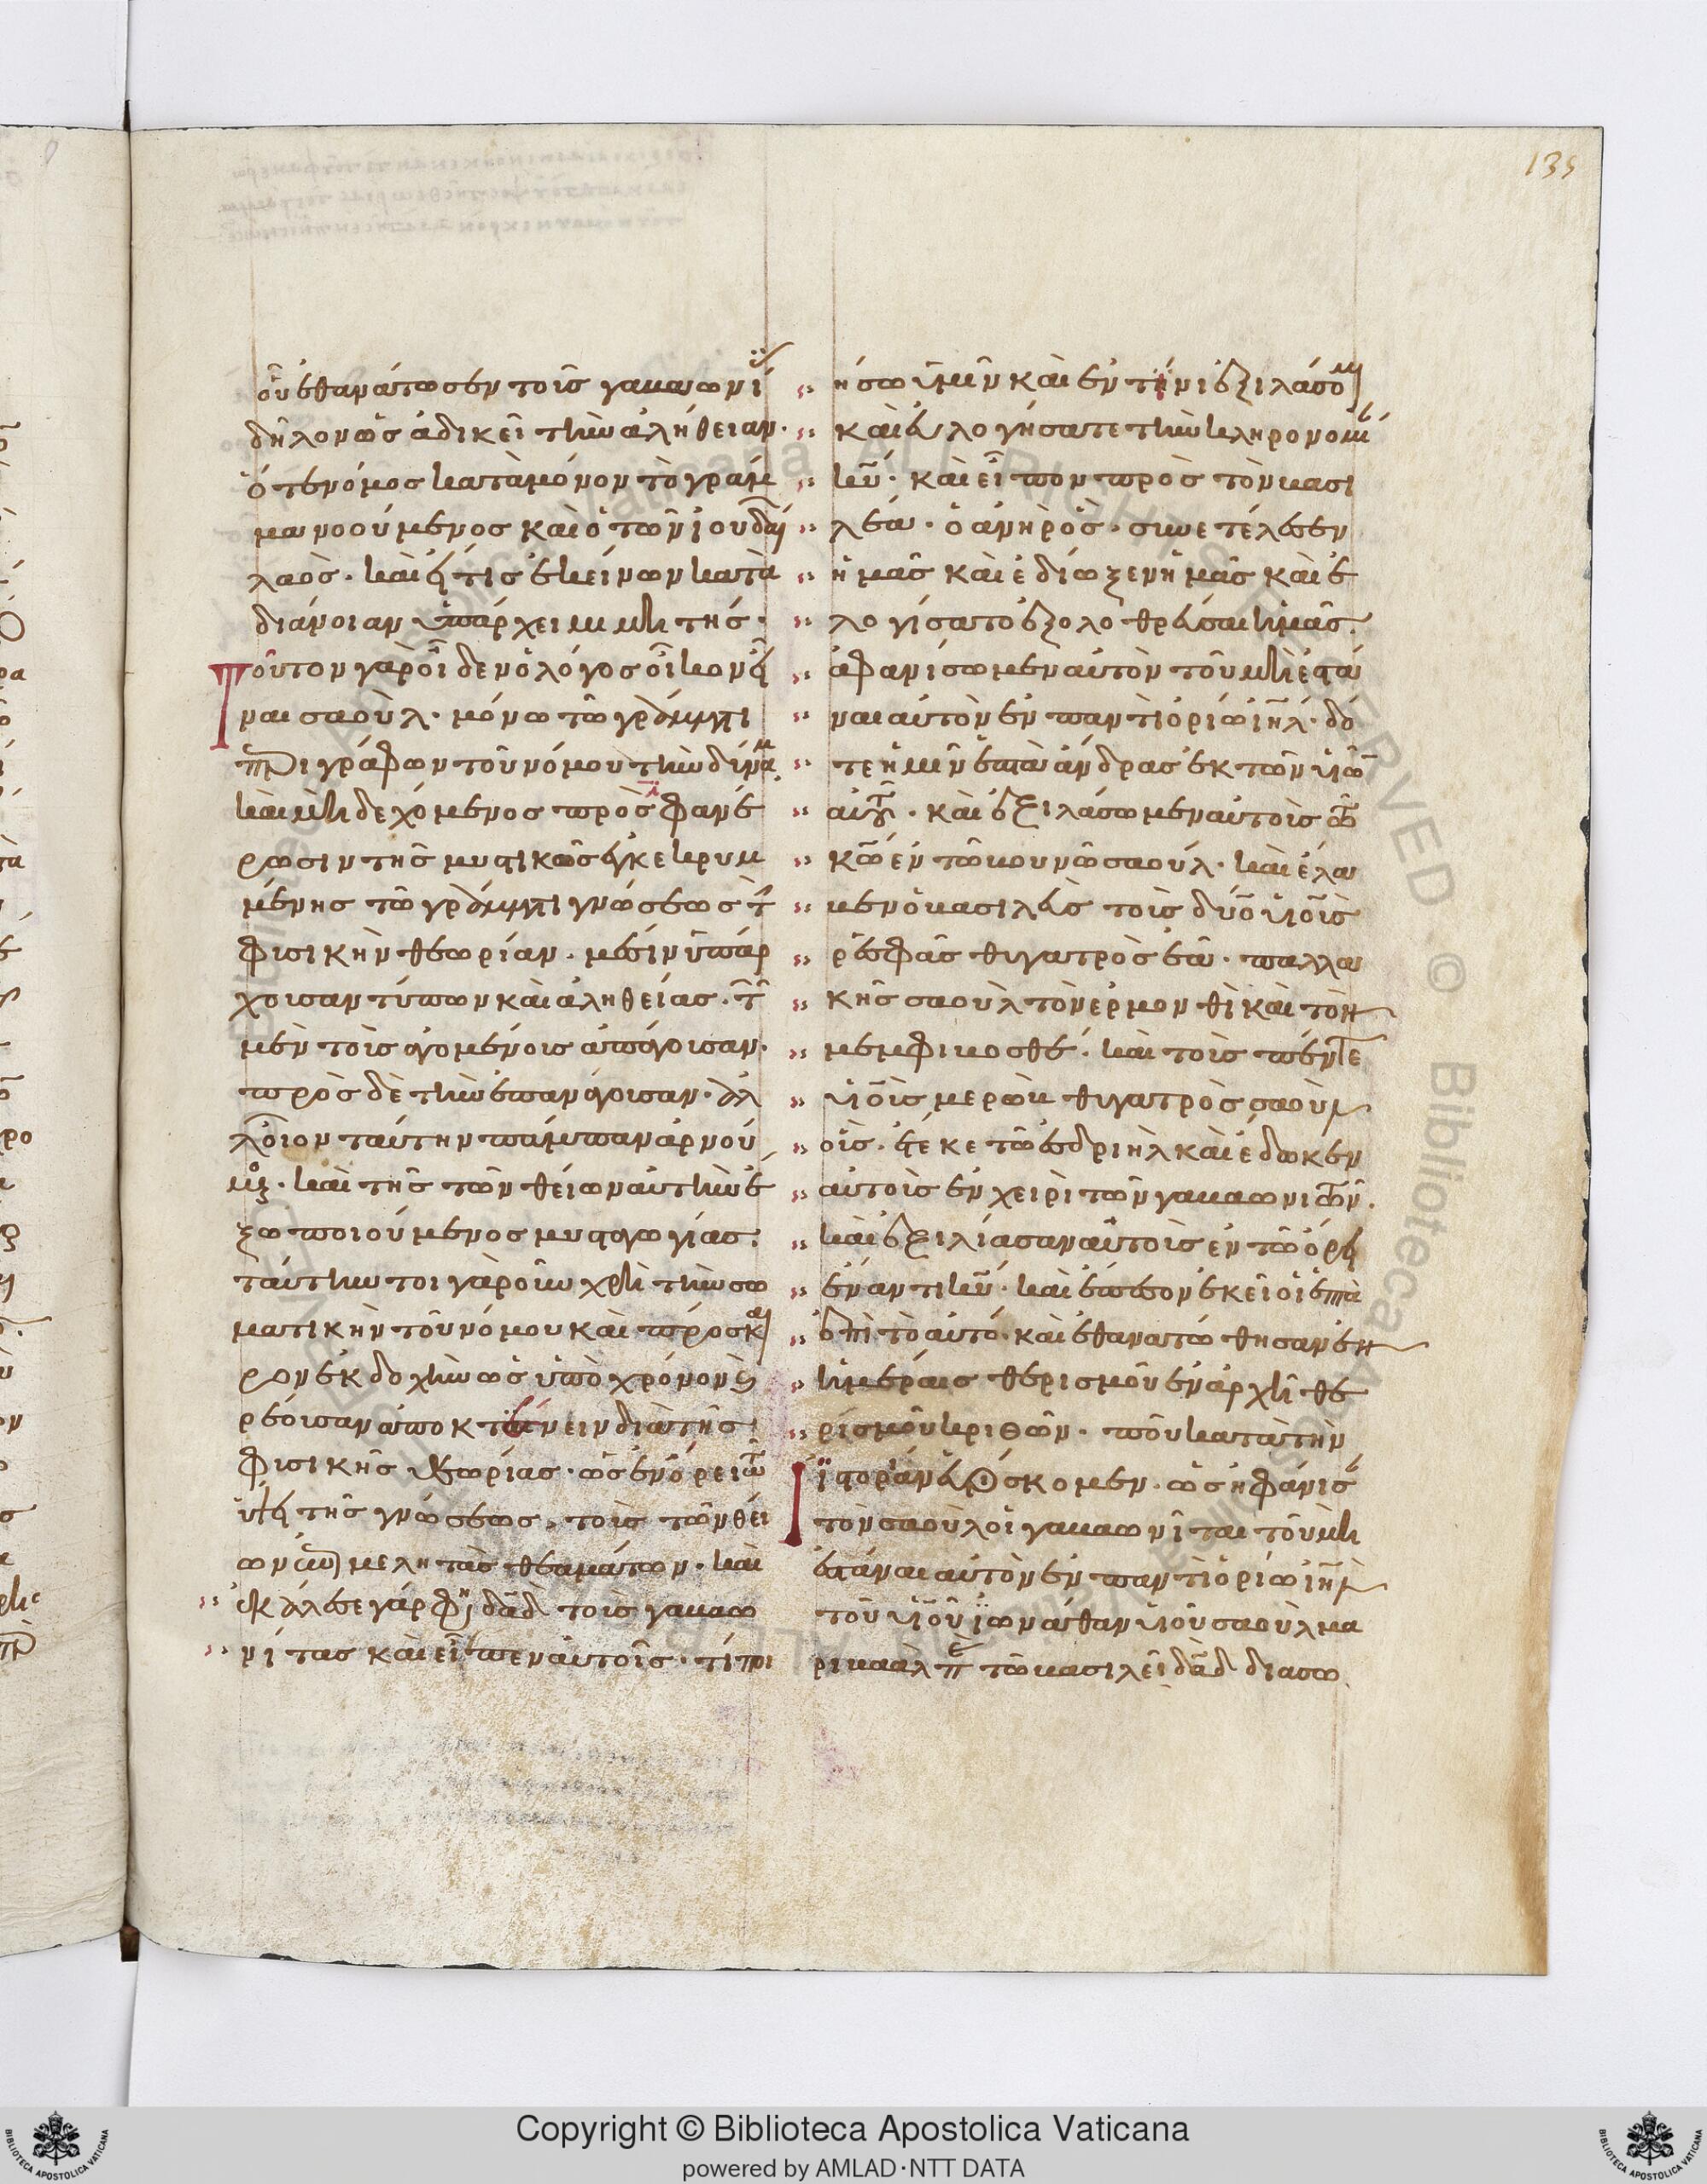 135
οὗ ἐθανάτωσεν τοὺς γαβαωνί
δηλονὡς ἀδικεῖ τὴν ἀλήθειαν·
ὅ τε νόμος κατὰ μόνον τὸ γράμ
μα νοούμενος καὶ ὁ τῶν ἰουδαί
λαὸς· καὶ εἴ τις ἐκείνων κατὰ
διάνοιαν ὑπάρχει μιμητής·
Τοῦτον γὰρ οἶδεν ὁ λόγος οἶκον εἶ
ναι σαοὺλ· μόνω τῶ γράμματι
περιγράφων τοῦ νόμου τὴν δύναμ
καὶ μὴ δεχόμενος πρὸς φανέ
ρωσιν τῆς μυστικῶς ἐγκεκρυμ
μένης τῶ γράμματι γνώσεως τὴν
φυσικὴν θεωρίαν· μέσην ὑπάρ
χουσαν τύπων καὶ ἀληθείας· τῶν
μὲν τοὺς ἀγομένους ἀπάγουσαν·
πρὸς δὲ τὴν ἐπανάγουσαν· ἀλ
λοῖον ταύτην πάμπαν ἀρνού
μενος· καὶ τῆς τῶν θείων αὐτὴν ἔ
ξω ποιούμενος μυσταγωγίας·
ταύτην τοιγαροῦν χρὴ τὴν σω
ματικὴν τοῦ νόμου καὶ πρόσκαι
ρον ἐκδοχὴν ὡς ὑπὸ χρόνον καὶ
ῥέουσαν ἀποκτείνειν διὰ τῆς
φυσικῆς θεωρίας· ὡς ἐν ὄρει τῶ
ὕψει τῆς γνώσεως, τοὺς τῶν θεί
ων μελητὰς θεαμάτων· καὶ
ἐκάλεσε γάρ φησι δαδ τοὺς γαβαω
νίτας καὶ εἶπεν αὐτοῖς· τί ποι
ήσω ὑμῖν καὶ ἐν τίνι ἐξιλάσομαι
καὶ εὐλογήσατε τὴν κληρονομί
κυ· καὶ εἶπον πρὸς τὸν βασι
λέα· ὁ ἀνὴρ ὃς· συνετέλεσεν
ἡμᾶς καὶ ἐδίωξεν ἡμᾶς καὶ ἐ
λογίσατο ἐξολοθρεῦσαι ἡμᾶς·
ἀφανίσωμεν αὐτὸν τοῦ μὴ ἑστά
ναι αὐτὸν ἐν παντὶ ὁρίω ιηλ· δό
τε ἡμῖν ἑπτὰ ἄνδρας ἐκ τῶν υἱῶν
αὐτοῦ· καὶ ἐξιλάσωμεν αὐτοὺς τῶ
κω ἐν τῶ βουνῶ σαούλ· καὶ ἔλα
βεν ὁ βασιλεὺς τοὺς δύο υἱοὺς
ῥεσφᾶς θυγατρὸς ἐᾶ· παλλα
κῆς σαοὺλ τὸν ἑρμονθὶ καὶ τὸν
μεμφιβοσθέ· καὶ τοὺς πέντε
υἱοὺς μερὼβ θυγατρὸς σαοὺλ
οὓς· ἔτεκε τῶ ἐσδριὴλ καὶ ἔδωκεν
αὐτοὺς ἐν χειρὶ τῶν γαβαωνιτῶν·
καὶ ἐξιλίασαν αὐτοὺς ἐν τῶ ὄρει
ἔναντι κυ· καὶ ἔπεσον ἐκεῖ οἱ ἑπτὰ
ἐπὶ τὸ αὐτό· καὶ ἐθανατώθησαν ἐν
ἡμέραις θερισμοῦ ἐν ἀρχῆ θε
ρισμοῦ κριθῶν· ποῦ κατὰ τὴν
ἱστορίαν εὑρίσκομεν· ὡς ἠφάνισε
τὸν σαοὺλ οἱ γαβαωνῖται τοῦ μὴ
ἑστάναι αὐτὸν ἐν παντὶ ὁρίω ιηλ
τοῦ υἱοῦ ϊωνάθαν υἱοῦ σαοὺλ με
ριβαὰλ παρὰ τῶ βασιλεῖ δαδ διασω
Copyright © Biblioteca Apostolica Vaticana
powered by AMLAD·NTT DATA